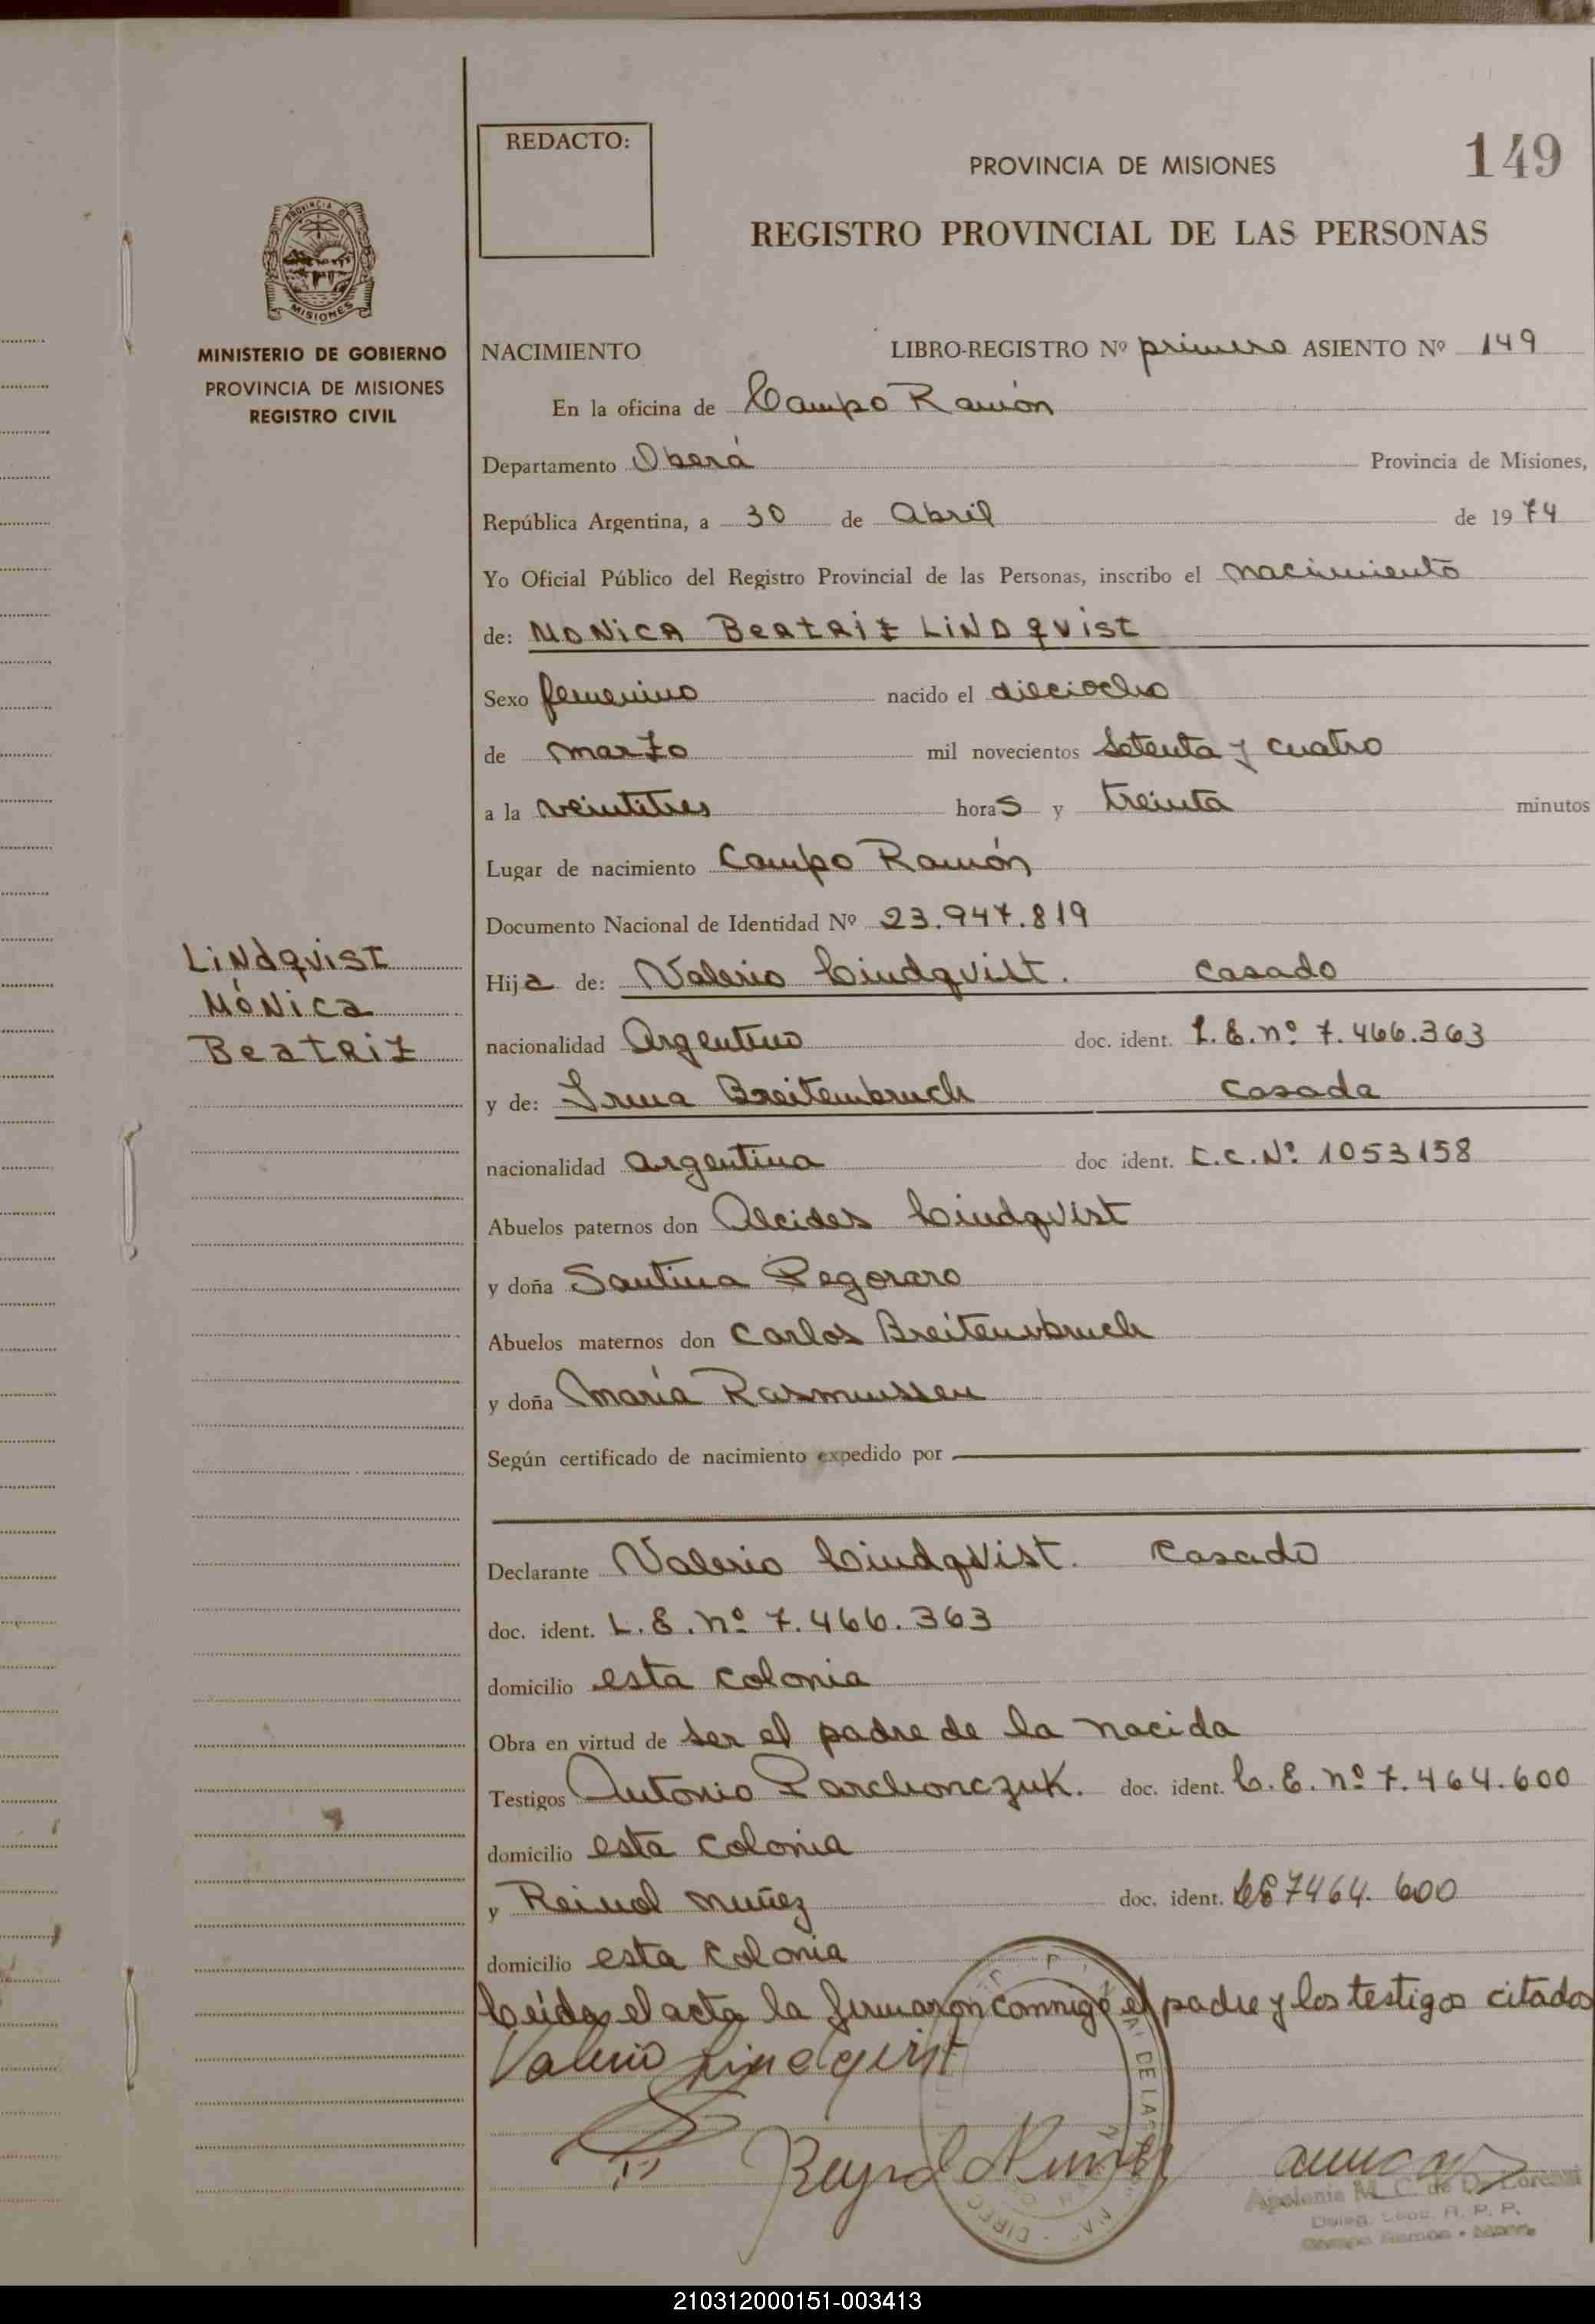 REDACTO:
PROVINCIA DE MISIONES
149
REGISTRO PROVINCIAL DE LAS PERSONAS
PROVINCIA DE
MISIONES
MINISTERIO DE GOBIERNO
PROVINCIA DE MISIONES
REGISTRO CIVIL
NACIMIENTO LIBRO-REGISTRO Nº primero ASIENTO Nº 149
En la oficina de Campo Ramón
Departamento Oberá Provincia de Misiones,
República Argentina, a 30 de Abril de 1974
Yo Oficial Público del Registro Provincial de las Personas, inscribo el nacimiento
de: MONICA BEATRIZ LINDQVIST
Sexo femenino nacido el dieciocho
de marzo mil novecientos setenta y cuatro
a la veintitres horas y treinta minutos
Lugar de nacimiento Campo Ramón
Documento Nacional de Identidad Nº 23.947.819
Lindqvist
Mónica
Beatriz
Hija de: Valerio Lindqvist. casado
nacionalidad Argentino doc. ident. L.E. nº 7.466.363
y de: Irma Breitembruch casada
nacionalidad argentina doc ident. C.C. Nº 1053158
Abuelos paternos don Alcides Lindqvist
y doña Santina Pegoraro
Abuelos maternos don Carlos Breitembruch
y doña María Rasmussen
Según certificado de nacimiento expedido por
Declarante Valerio Lindqvist. Casado
doc. ident. L.E. nº 7.466.363
domicilio esta colonia
Obra en virtud de ser el padre de la nacida
Testigos Antonio Parchonczuk. doc. ident. L.E. nº 7.464.600
domicilio esta colonia
y Reinol nuñez doc. ident. LE 7464.600
domicilio esta colonia
Leida el acta la firmaron conmigo el padre y los testigos citados
Valerio Lindqvist
Reynol Nuñez
Apolonia M. C. de De
Deleg. Locc. R. P. P.
Campo Ramón - Mnes.
210312000151-003413